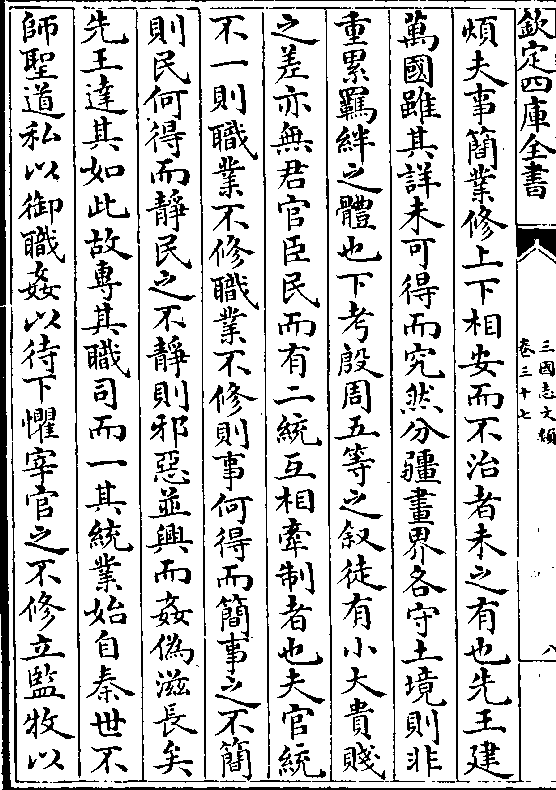 欽定四庫全書
三國志文類
卷三十七
八
煩夫事簡業修上下相安而不治者未之有也先王建
萬國雖其詳未可得而究然分疆畫界各守土境則非
重累羈絆之體也下考殷周五等之叙徒有小大貴賤
之差亦無君官臣民而有二統互相牽制者也夫官統
不一則職業不修職業不修則事何得而簡事之不簡
則民何得而靜民之不靜則邪惡並興而姦偽滋長矣
先王達其如此故專其職司而一其統業始自秦世不
師聖道私以御職姦以待下懼宰官之不修立監牧以